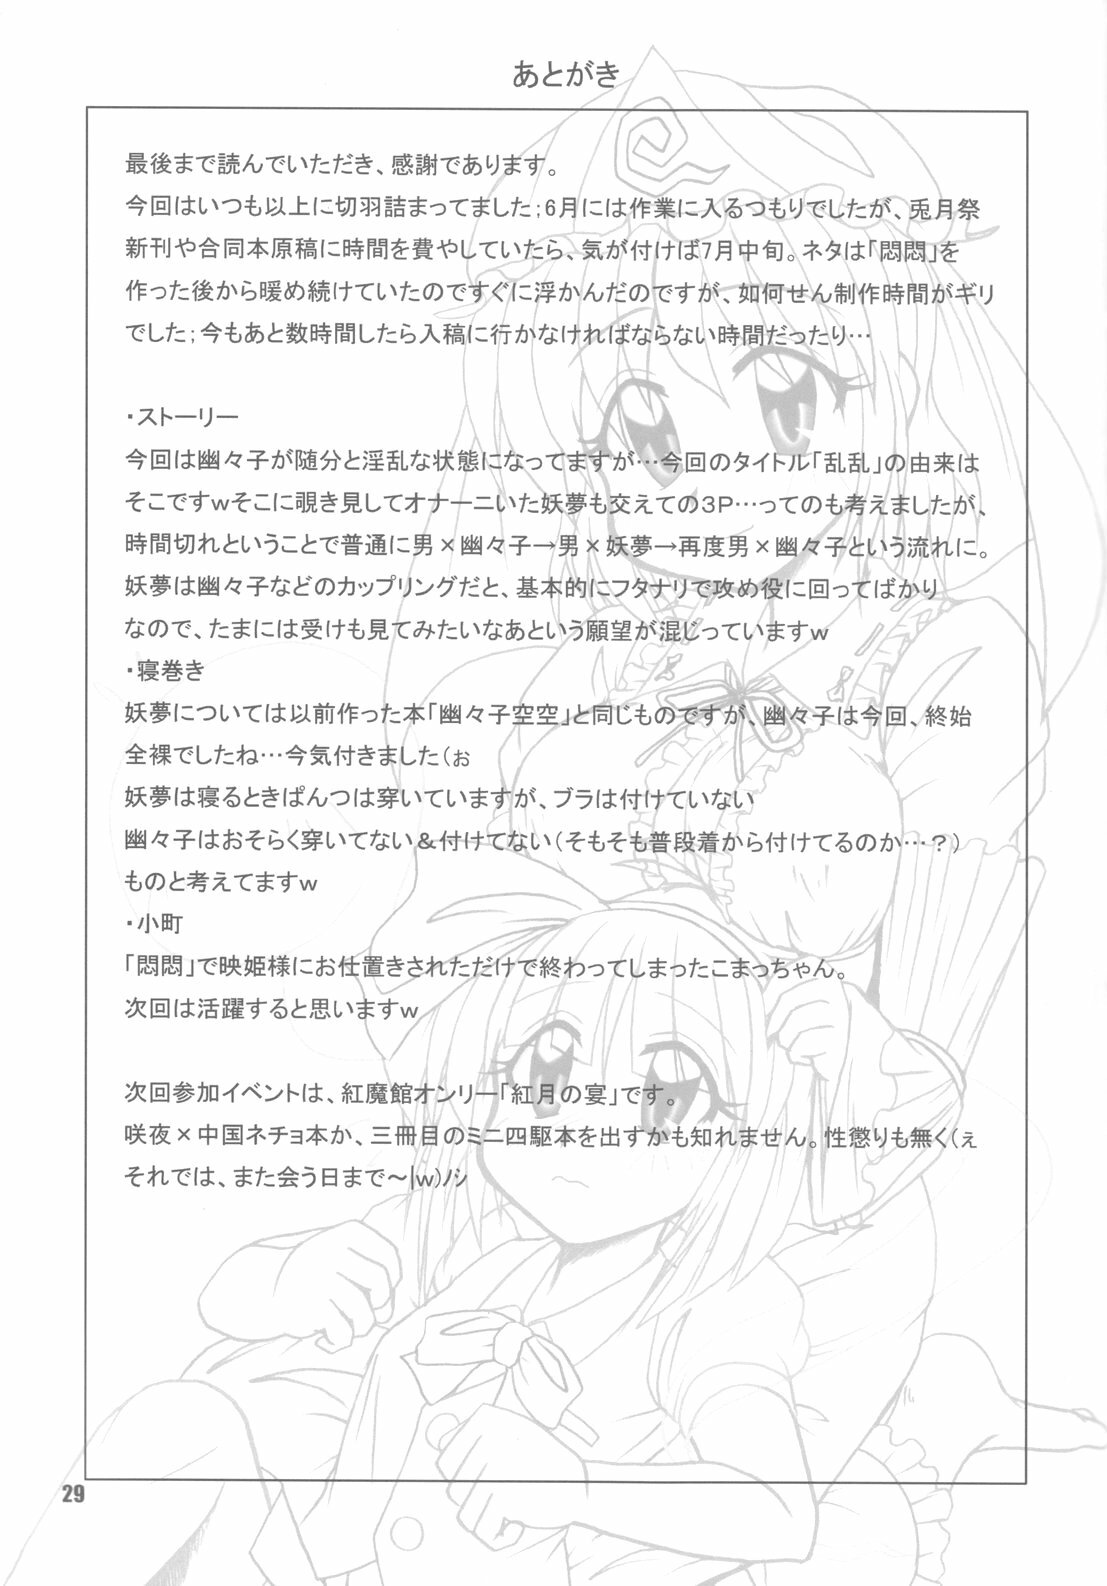 あとがき
最後まで読んでいただき、感謝であります。
今回はいつも以上に切羽詰まってました;6月には作業に入るつもりでしたが、兎月祭
新刊や合同本原稿に時間を費やしていたら、気が付けば7月中旬。ネタは「悶悶」を
作った後から暖め続けていたのですぐに浮かんだのですが、如何せん制作時間がギリ
でした;今もあと数時間したら入稿に行かなければならない時間だったり…
・ストーリー
今回は幽々子が随分と淫乱な状態になってますが…今回のタイトル「乱乱」の由来は
そこですwそこに覗き見してオナーニいた妖夢も交えての3P…ってのも考えましたが、
時間切れということで普通に男×幽々子→男×妖夢→再度男×幽々子という流れに。
妖夢は幽々子などのカップリングだと、基本的にフタナリで攻め役に回ってばかり
なので、たまには受けも見てみたいなあという願望が混じっていますw
・寝巻き
妖夢については以前作った本「幽々子空空」と同じものですが、幽々子は今回、終始
全裸でしたね…今気付きました(ぉ
妖夢は寝るときぱんつは穿いていますが、ブラは付けていない
幽々子はおそらく穿いてない&付けてない(そもそも普段着から付けてるのか…?)
ものと考えてますw
・小町
「悶悶」で映姫様にお仕置きされただけで終わってしまったこまっちゃん。
次回は活躍すると思いますw
次回参加イベントは、紅魔館オンリー「紅月の宴」です。
咲夜×中国ネチョ本か、三冊目のミニ四駆本を出すかも知れません。性懲りも無く(ぇ
それでは、また会う日まで～|w)ﾉｼ
29